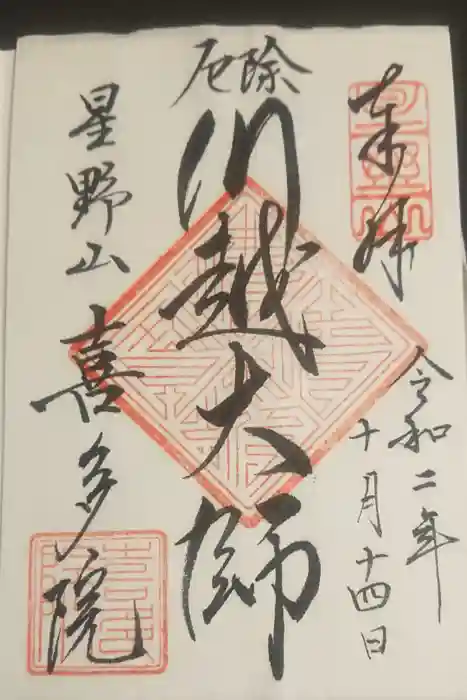 奉拝
令和二年
十月十四日
厄除
川越大師
星野山
喜多院